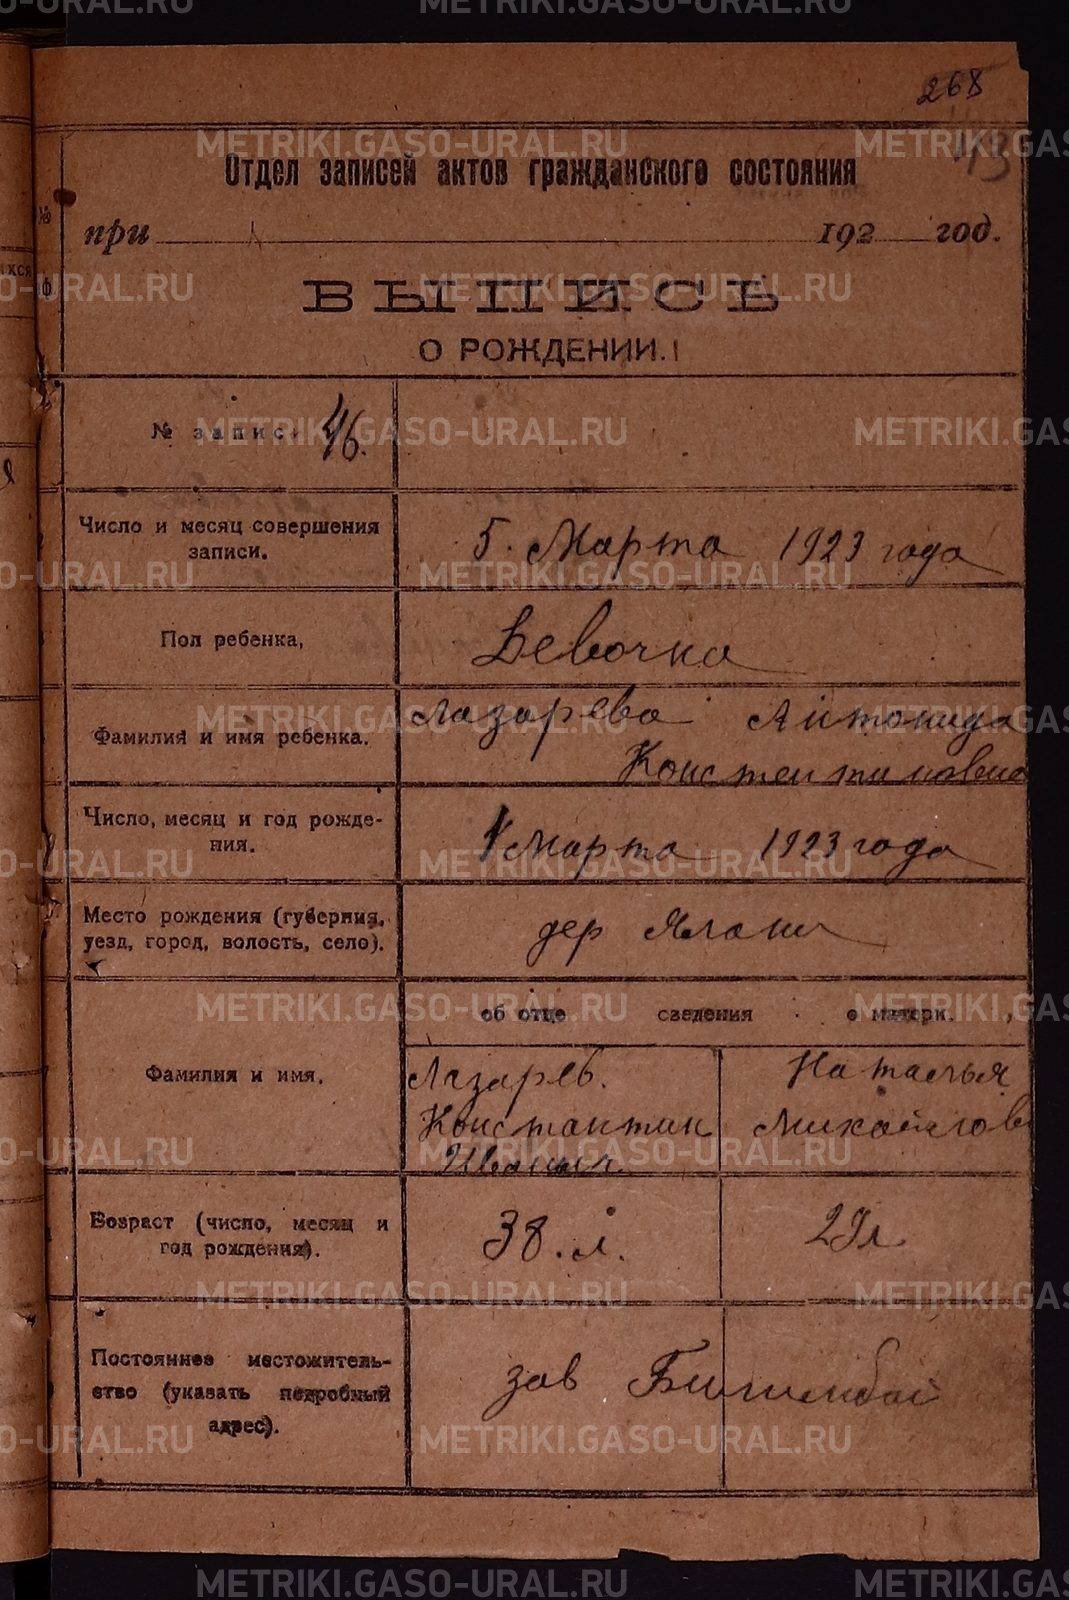 268
43
Отдел записей актов гражданского состояния
при 192 год.
ВЫПИСЬ
О РОЖДЕНИИ.
№ запис 46.
Число и месяц совершения записи.
5. Марта 1923 года
Пол ребенка,
Девочка
Фамилия и имя ребенка.
Лазарева Антонида
Константиновна
Число, месяц и год рожде-
ния.
1 Марта 1923 года
Место рождения (губерния,
уезд, город, волость, село).
дер
об отце сведения о матери.
Фамилия и имя.
Лазарев.
Константин
Наталья
Михайлов
Возраст (число, месяц и
год рождения).
38. л.
29 л
Постоянное местожитель-
ство (указать подробный
адрес).
зав Билимбай
METRIKI.GASO-URAL.RU